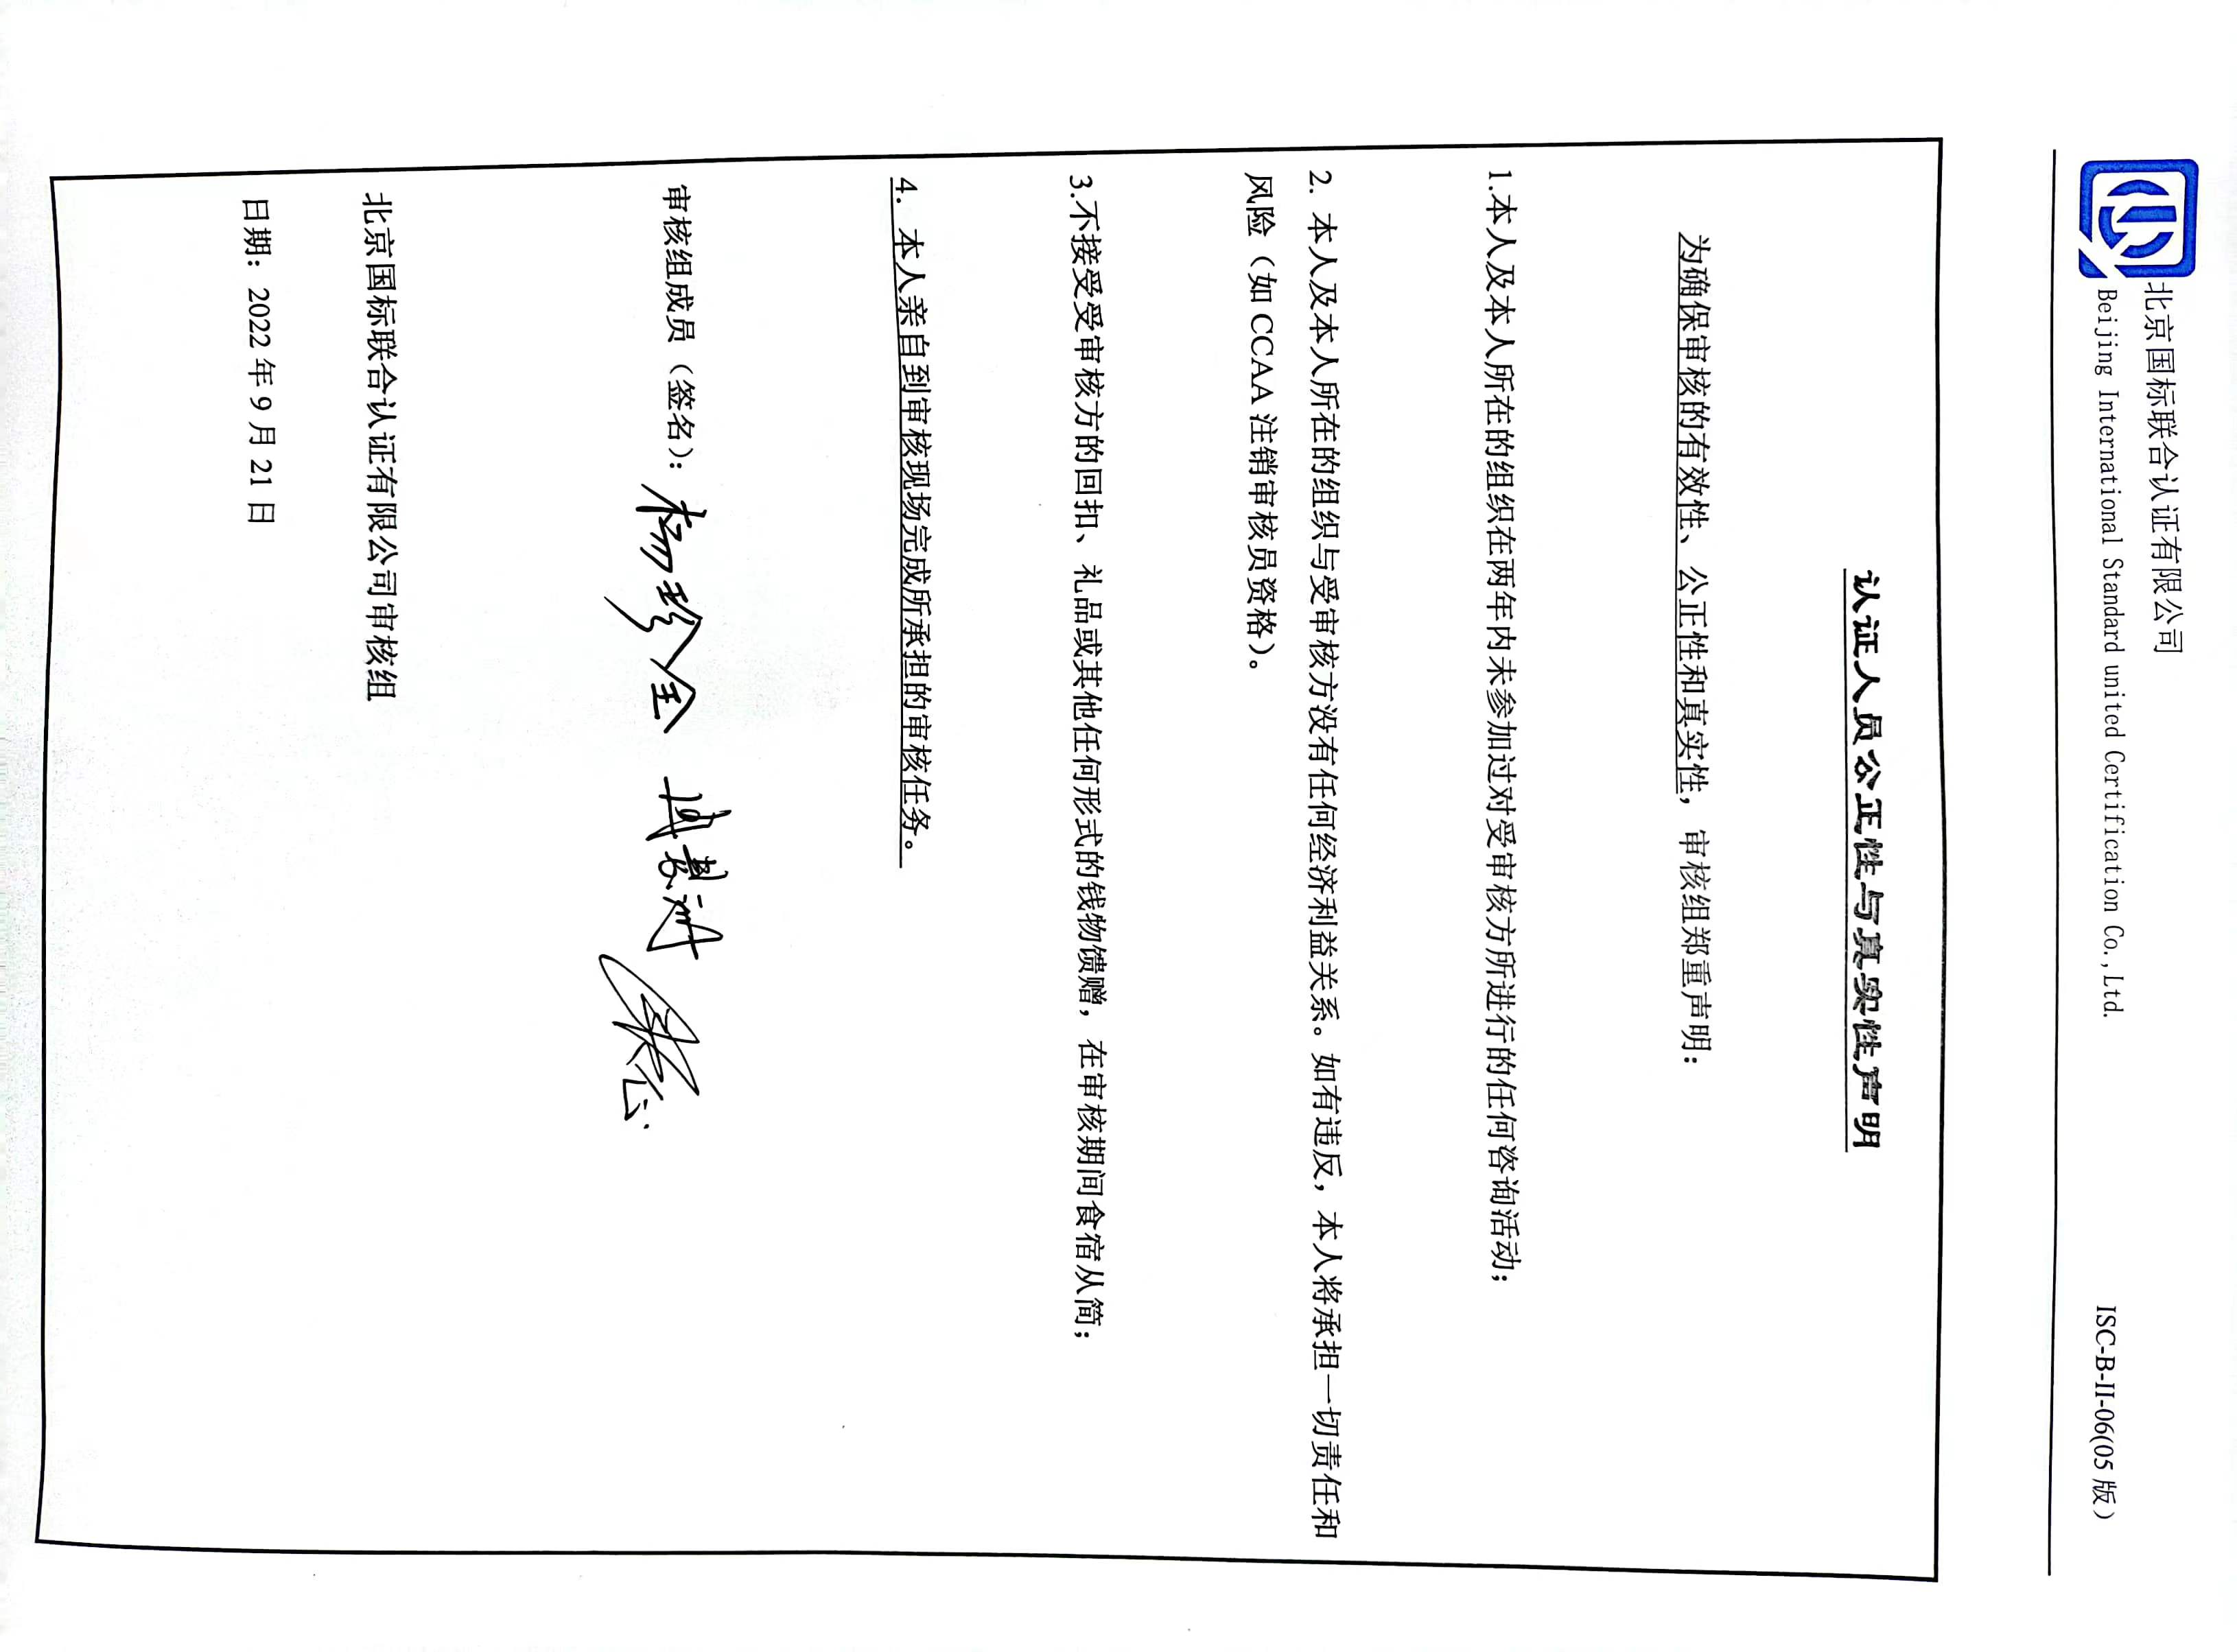 北京国标联合认证有限公司
Beijing International Standard united Certification Co.,Ltd.
ISC-B-II-06(05版)
认证人员公正性与真实性声明
为确保审核的有效性、公正性和真实性，审核组郑重声明：
1.本人及本人所在的组织在两年内未参加过对受审核方所进行的任何咨询活动；
2. 本人及本人所在的组织与受审核方没有任何经济利益关系。如有违反，本人将承担一切责任和
风险（如 CCAA 注销审核员资格）。
3.不接受受审核方的回扣、礼品或其他任何形式的钱物馈赠，在审核期间食宿从简；
4. 本人亲自到审核现场完成所承担的审核任务。
审核组成员（签名）：杨珍全
北京国标联合认证有限公司审核组
日期：2022 年 9 月 21 日